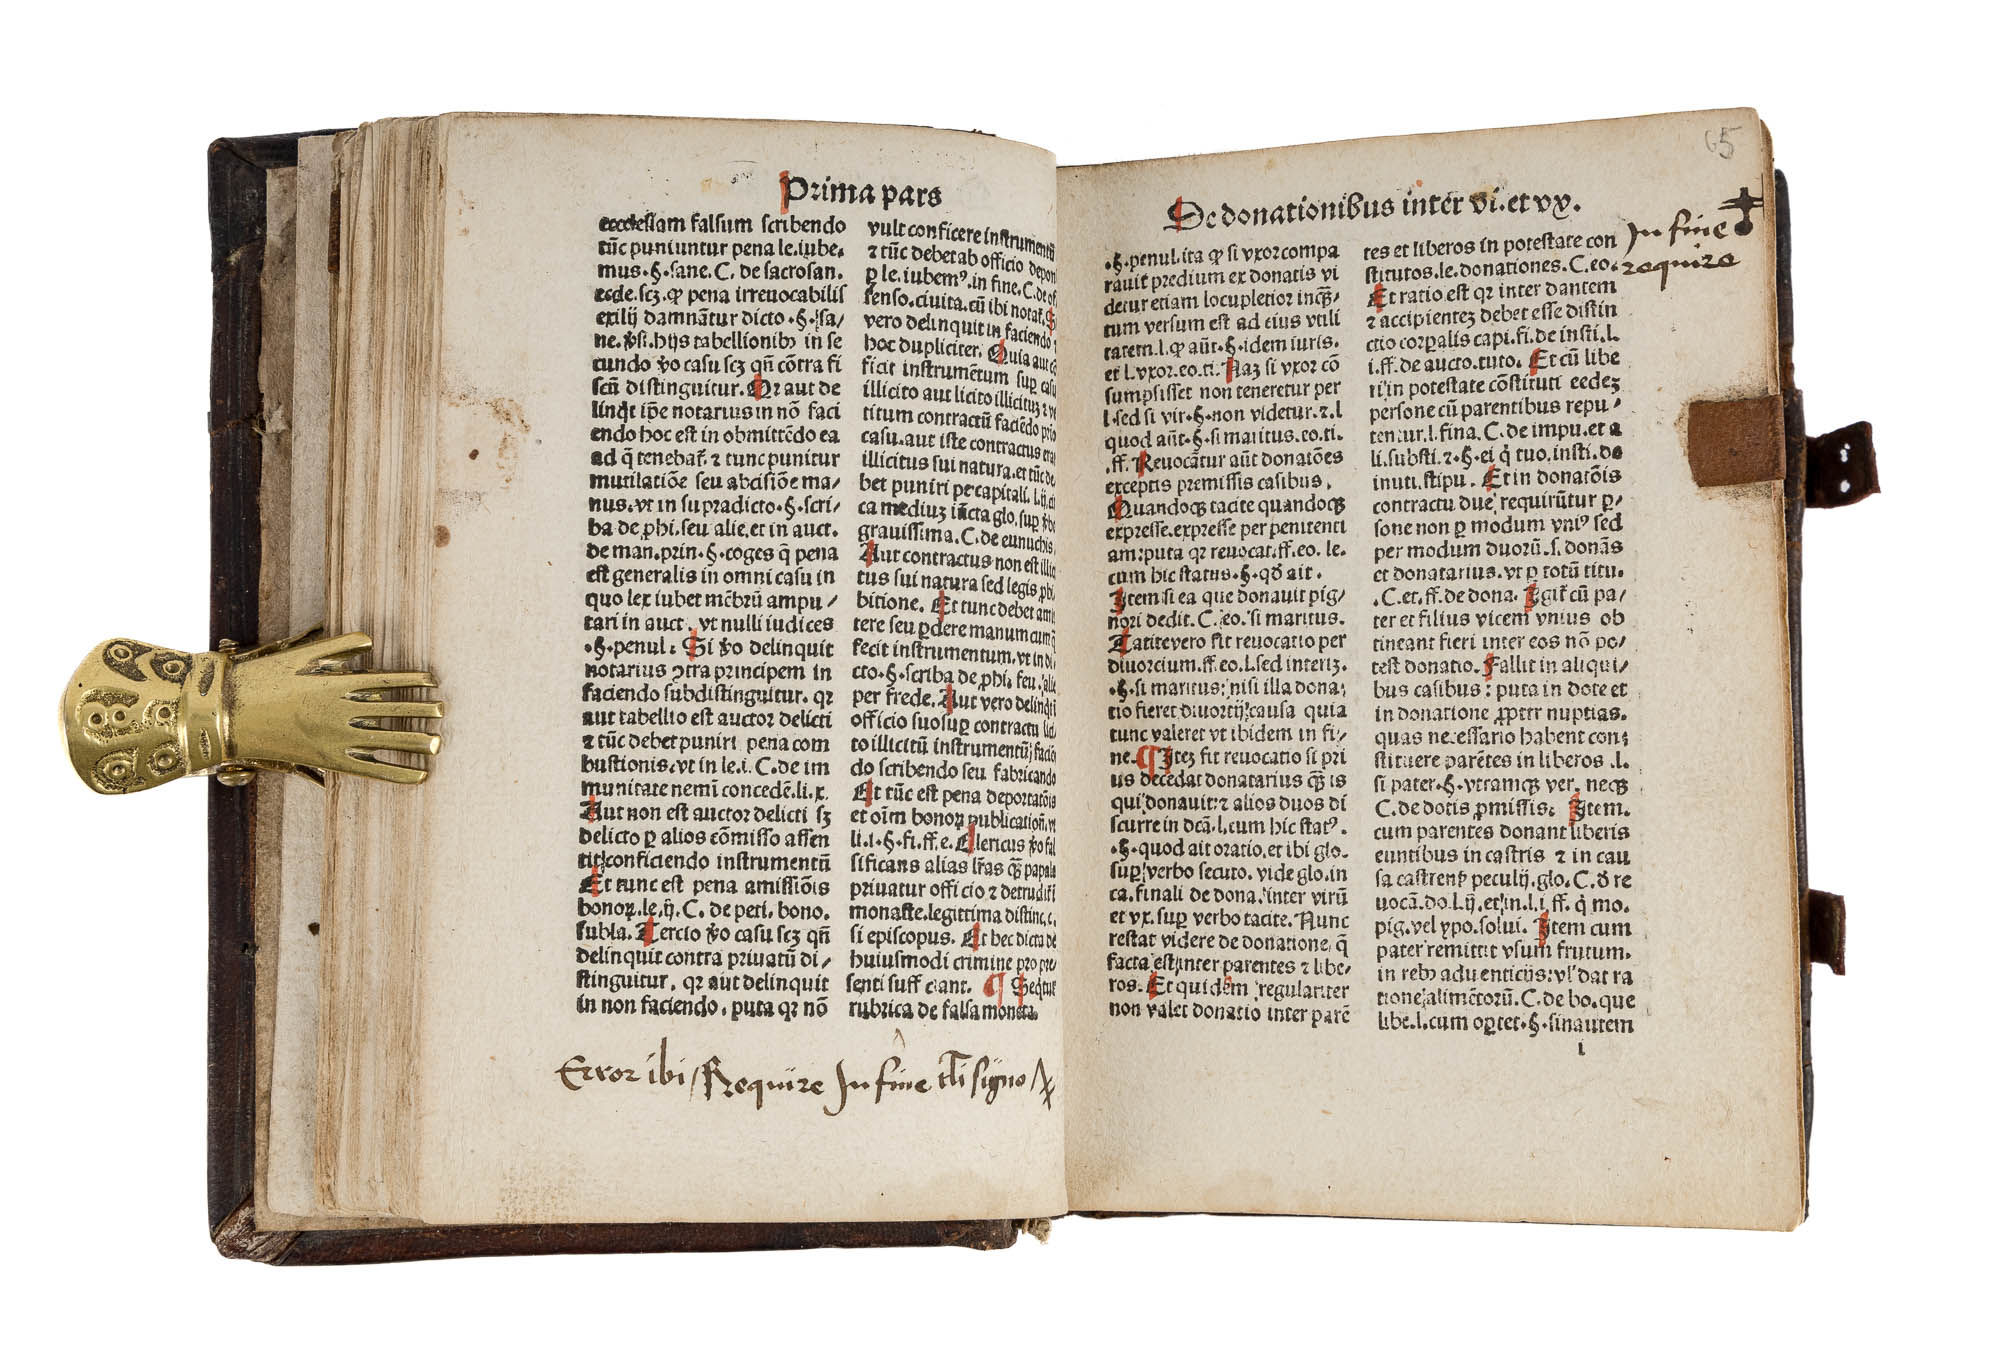 Prima pars
ecclesiam falsum scribendo
tūc puniuntur pena le. iube-
mus. §. sane. C. de sacrosan.
ecde. scꝫ. ꝙ pena irreuocabilis
exilij damnātur dicto. §. sa/
ne. ꝟsi. hijs tabellionibꝰ in se
cundo ꝟo casu scꝫ qn̄ cōtra fi
scū distinguitur. Qr aut de
linqt ip̄e notarius in nō faci
endo hoc est in obmittēdo ea
ad q̄ tenebat̄. ⁊ tunc punitur
mutilatiōe seu abcisiōe ma/
nus. vt in supradicto. §. scri/
ba de ꝓhi. feu alie. et in auct.
de man. prin. §. coges q̄ pena
est generalis in omni casu in
quo lex iubet mēbrū ampu/
tari in auct. vt nulli iudices
.§. penul. Si ꝟo delinquit
notarius ꝯtra principem in
faciendo subdistinguitur. qr
aut tabellio est auctor delicti
⁊ tūc debet puniri pena com
bustionis. vt in le. i. C. de im
munitate nemini concedē. li. x.
Aut non est auctor delicti sꝫ
delicto ꝑ alios cōmisso assen
tit conficiendo instrumentū
Et tunc est pena amissiōis
bonoꝝ. le. ij. C. de peti. bono.
subla. Tercio ꝟo casu scꝫ qn̄
delinquit contra priuatū di/
stinguitur. qr aut delinquit
in non faciendo. puta qr nō
vult conficere instrumentū
⁊ tūc debet ab officio depon
ꝑ le. iubemꝰ. in fine. C. de of
senso. ciuita. cū ibi notat̄. S
vero delinquit in faciendo ⁊
hoc dupliciter. Quia aut cō
ficit instrumētum suꝑ casu
illicito aut licito illicituꝫ ⁊ vt
titum contractū faciēdo prīo
casu. aut iste contractus erat
illicitus sui natura. et tūc de
bet puniri pe capitali. l. ij. ci
ca mediuꝫ iūcta glo. suꝑ ꝟbo
grauissima. C. de eunuchis.
Aut contractus non est illici
tus sui natura sed legis ꝓhi
bitione. Et tunc debet amit
tere seu ꝑdere manum cum q̄
fecit instrumentum. vt in di
cto. §. scriba de ꝓhi. feu. alie
per frede. Aut vero delinqͥt ī
officio suo suꝑ contractu lici
to illicitū instrumentū faciē
do scribendo seu fabricando
Et tūc est pena deportatōis
et oīm bonoꝝ publicationū. vt
li. i. §. fi. ff. e. Clericus ꝟo fal
sificans alias lr̄as ꝙ̄ papale
priuatur officio ⁊ detrudit̄ ī
monaste. legittima distinc. c.
si episcopus. Et hec dicta de
huiusmodi crimine pro pre
senti sufficiant. ¶ Seqͥtur
rubrica de falsa moneta.
Error ibi / Require In fine tli signo
65
De donationibus inter vi. et vx.
In fine
require
.§. penul. ita ꝙ si vxor compa
rauit predium ex donatis vi
detur etiam locupletior inqꝫ̄
tum versum est ad eius vtili
tatem. l. ꝙ aūt. §. idem iuris.
et l. vxor. eo. ti. Naꝫ si vxor cō
sumpsisset non teneretur per
l. sed si vir. §. non videtur. ⁊. l
quod aūt. §. si maritus. eo. ti.
.ff. Reuocātur aūt donatōes
exceptis premissis casibus.
Quandoqꝫ tacite quandoqꝫ
expresse. expresse per penitenti
am: puta qr reuocat. ff. eo. le.
cum hic status. §. qd ait.
Item si ea que donauit pig/
nori dedit. C. eo. si maritus.
Tatite vero fit reuocatio per
diuorcium. ff. eo. l. sed interiꝫ.
.§. si maritus: nisi illa dona;
tio fieret diuortij causa quia
tunc valeret vt ibidem in fi/
ne. ¶ Iteꝫ fit reuocatio si pri
us decedat donatarius qꝫ̄ is
qui donauit: ⁊ alios duos di
scurre in dcā. l. cum hic statꝰ.
.§. quod ait oratio. et ibi glo.
suꝑ verbo secuto. vide glo. in
ca. finali de dona. inter virū
et vx. suꝑ verbo tacite. Nunc
restat videre de donatione. q̄
facta est inter parentes ⁊ libe-
ros. Et quidem regulariter
non valet donatio inter parē
tes et liberos in potestate con
stitutos. le. donationes. C. eo.
Et ratio est qr inter dantem
⁊ accipienteꝫ debet esse distin
ctio corꝑalis capi. fi. de insti. l.
i. ff. de aucto. tuto. Et cū libe
ri in potestate cōstituti eedeꝫ
persone cū parentibus repu/
tentur. l. fina. C. de impu. et a
li. substi. ⁊. §. ei q̇ tuo. insti. de
inuti. stipu. Et in donatōis
contractu due requirūtur ꝑ-
sone non ꝑ modum vniꝰ sed
per modum duorū. s. donās
et donatarius. vt ꝑ totū titu.
.C. et. ff. de dona. Igit̄ cū pa/
ter et filius vicem vnius ob
tineant fieri inter eos nō po/
test donatio. Fallit in aliqui/
bus casibus: puta in dote et
in donatione ꝓpter nuptias.
quas necessario habent con;
stituere parētes in liberos. l.
si pater. §. vtramqꝫ ver. necqꝫ
C. de dotis ꝓmissis. Item.
cum parentes donant liberis
euntibus in castris ⁊ in cau
sa castrenꝫ peculij. glo. C. ð re
uocā. do. l. ij. et in. l. i. ff. q̇ mo.
pig. vel ypo. solui. Item cum
pater remittit vsum frutum.
in rebꝰ aduenticijs: vl̓ dat ra
tione alimētorū. C. de bo. que
libe. l. cum oꝑtet. §. sin autem
i